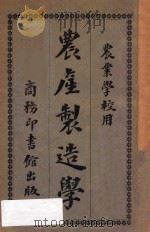 農業學校用
農產製造學
商務印書館出版